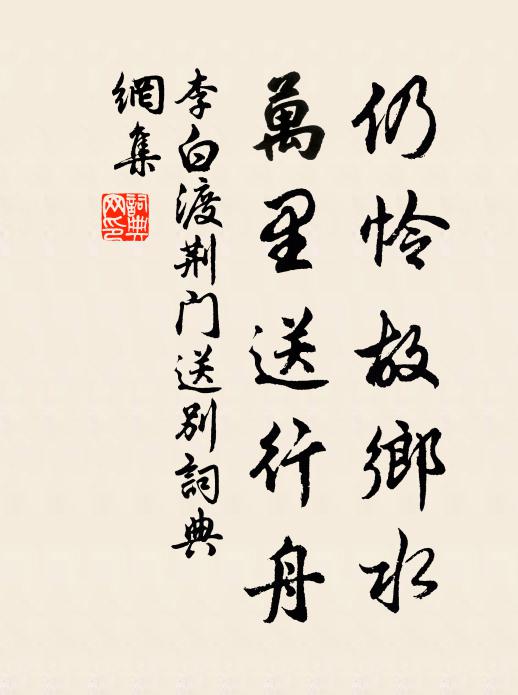 仍怜故鄉水
萬里送行舟
李白渡荆门送别詞典
網集
詞典网印